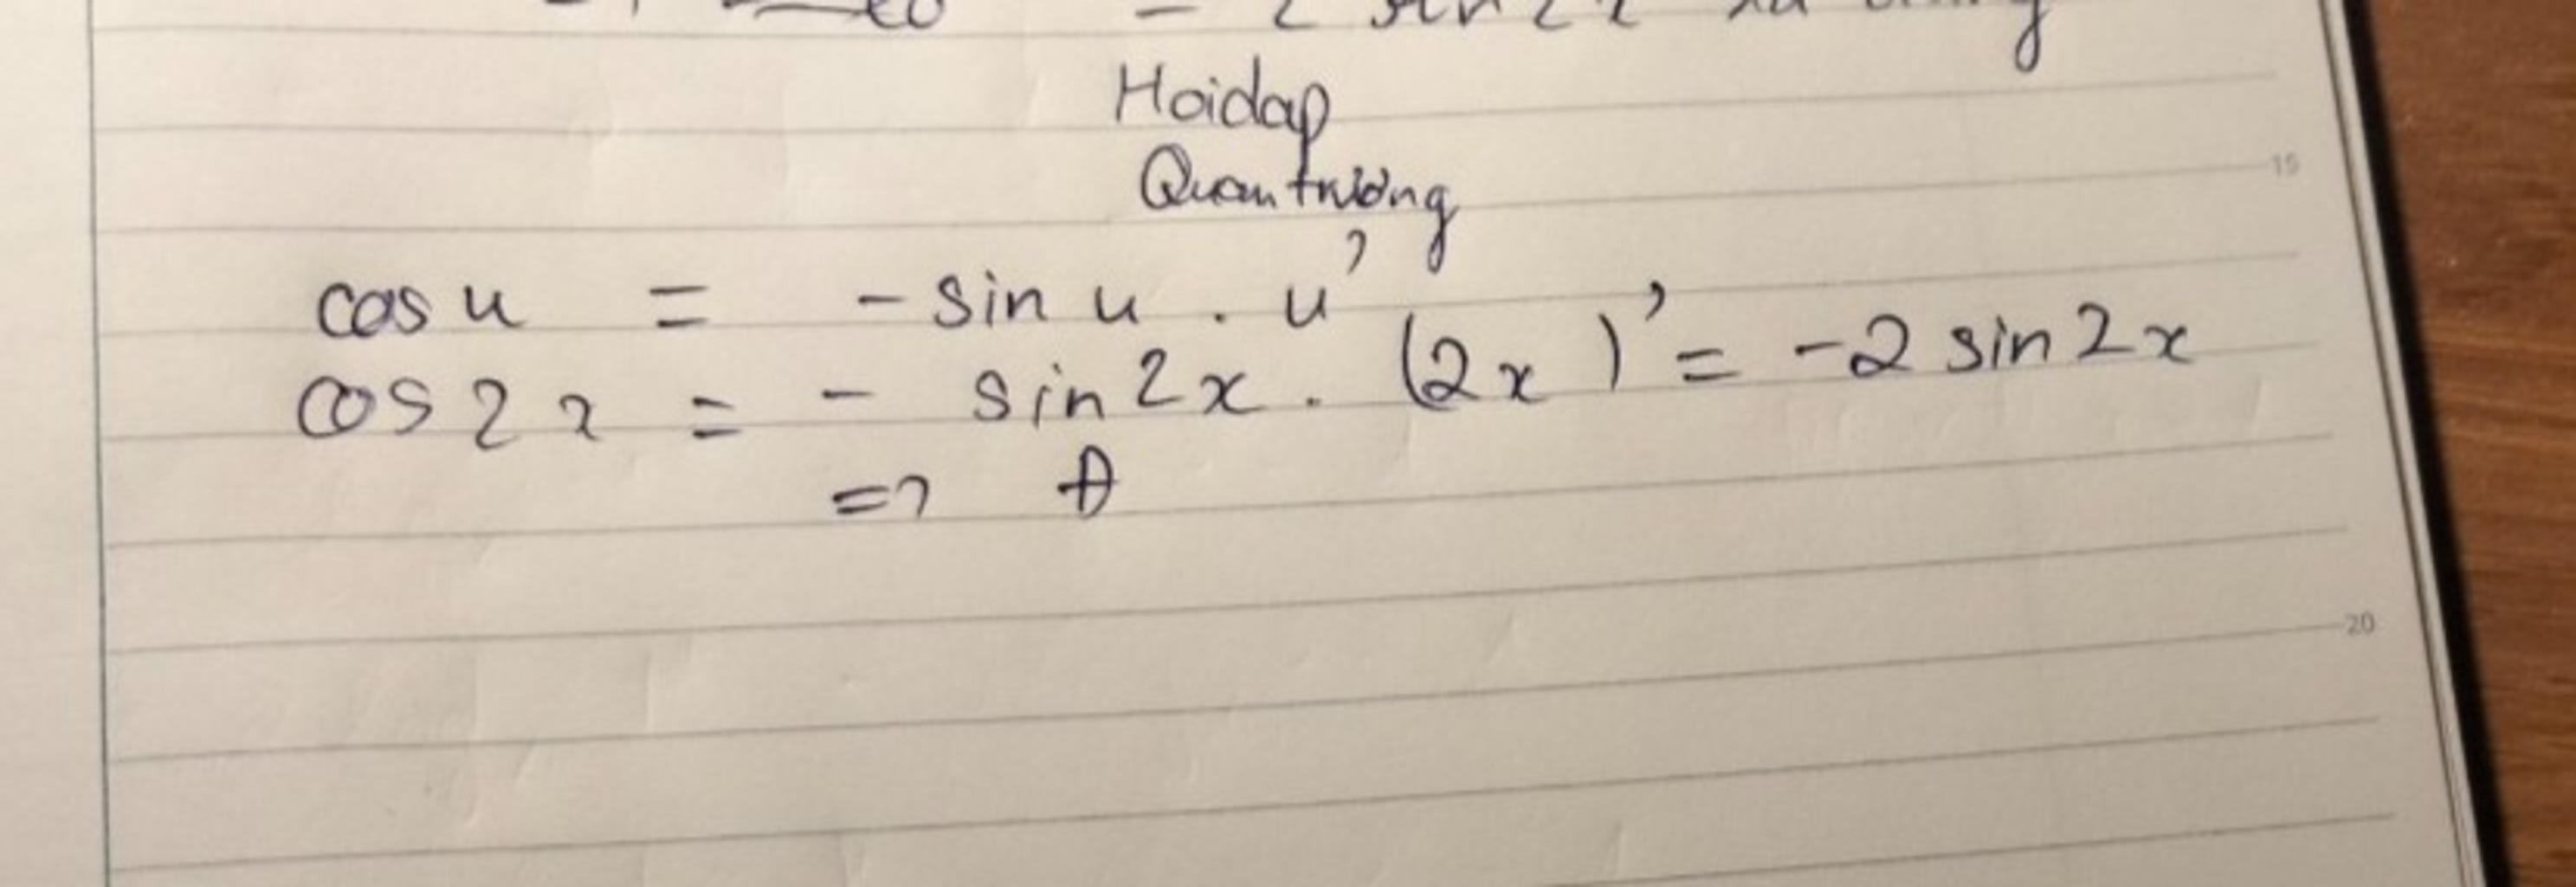 = 2 sin 2x
Hoidap
Quantrường
cos u = - sin u . u'
15
cos 2x = - sin 2x . (2x)' = -2 sin 2x
=> A
20